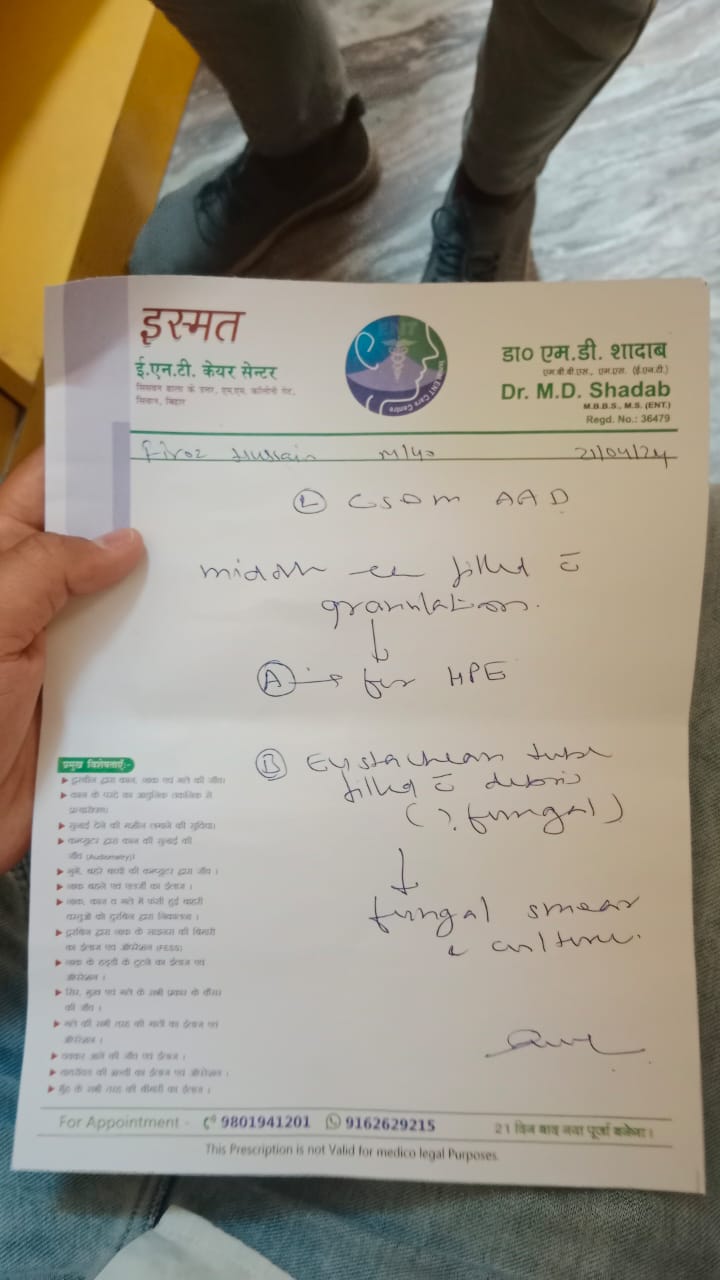 इस्मत
ई.एन.टी. केयर सेन्टर
सिसवन ढाला के उत्तर, एम.एम. कॉलोनी गेट,
सिवान, बिहार
ENT
ENT Care Centre
डा० एम.डी. शादाब
एम.बी.बी.एस., एम.एस. (ई.एन.टी.)
Dr. M.D. Shadab
M.B.B.S., M.S. (ENT.)
Regd. No.: 36479
Firoz Hussain M/40 21/04/24
(L) CSOM AAD
middle ear filled c̄
granulations.
↓
(A) → for HPE
(B) Eustachean tube
filled c̄ debris
(? fungal)
↓
fungal smear
& culture.
प्रमुख विशेषताएँ:-
दूरबीन द्वारा कान, नाक एवं गले की जाँच।
कान के परदे का आधुनिक तकनिक से
प्रत्यारोपण।
सुनाई देने की मशीन लगाने की सुविधा।
कम्प्यूटर द्वारा कान की सुनाई की
जाँच (Audiometry)।
गूंगे, बहरे बच्चों की कम्प्यूटर द्वारा जाँच।
नाक बहने एवं एलर्जी का ईलाज।
नाक, कान व गले में फंसी हुई बाहरी
वस्तुओं को दूरबिन द्वारा निकालना।
दूरबिन द्वारा नाक के साइनस की बिमारी
का ईलाज एवं ऑपरेशन (FESS)
नाक के हड्डी के टूटने का ईलाज एवं
ऑपरेशन।
सिर, मुख एवं गले के सभी प्रकार के कैंसर
की जाँच।
गले की सभी तरह की गाठों का ईलाज एवं
ऑपरेशन।
चक्कर आने की जाँच एवं ईलाज।
थायरॉयड की ग्रन्थी का ईलाज एवं ऑपरेशन।
मुँह के सभी तरह की बीमारी का ईलाज।
For Appointment - 9801941201 9162629215
21 दिन बाद नया पूर्जा बनेगा।
This Prescription is not Valid for medico legal Purposes.